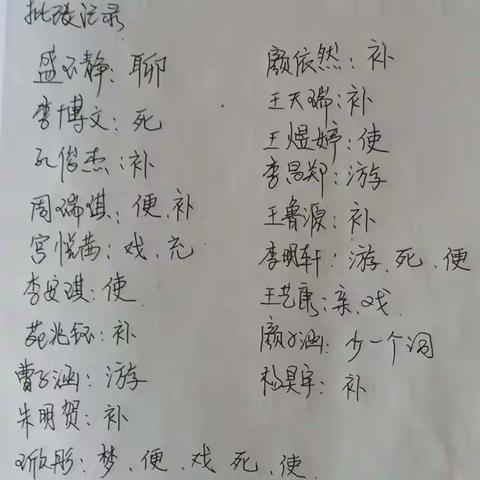 批改记录
盛子静：聊
李博文：死
孔俊杰：补
周瑞琪：便、补
宫悦茜：戏、充
李安琪：使
苑兆钰：补
曹子涵：游
朱明贺：补
彤：梦、便、戏、死、使
颜依然：补
王天瑞：补
王煜婷：使
李昌郑：游
王鲁源：补
李明轩：游、死、便
王艺康：亲、戏
颜子涵：少一个词
昊宇：补